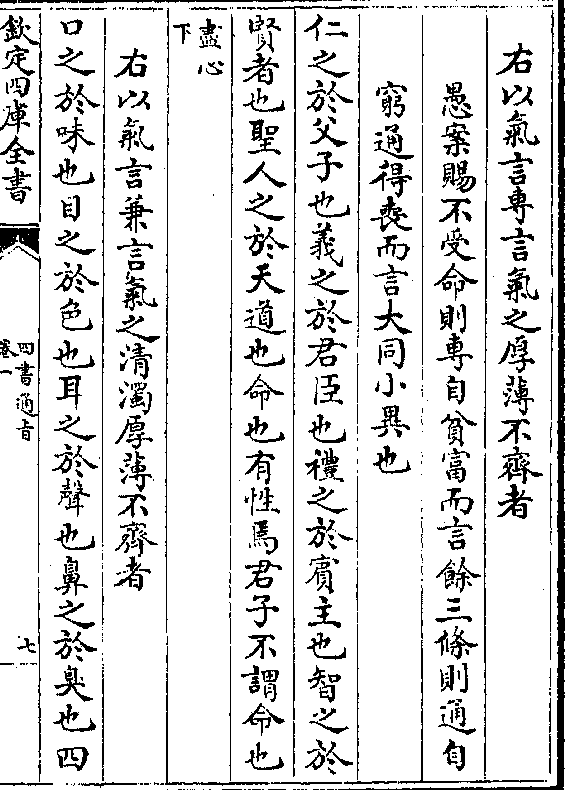 右以氣言專言氣之厚薄不齊者
愚案賜不受命則專自貧富而言餘三條則通自
窮通得喪而言大同小異也
仁之於父子也義之於君臣也禮之於賓主也智之於
賢者也聖人之於天道也命也有性焉君子不謂命也
盡心
下
右以氣言兼言氣之清濁厚薄不齊者
口之於味也目之於色也耳之於聲也鼻之於臭也四
欽定四庫全書
四書通旨
卷一
七